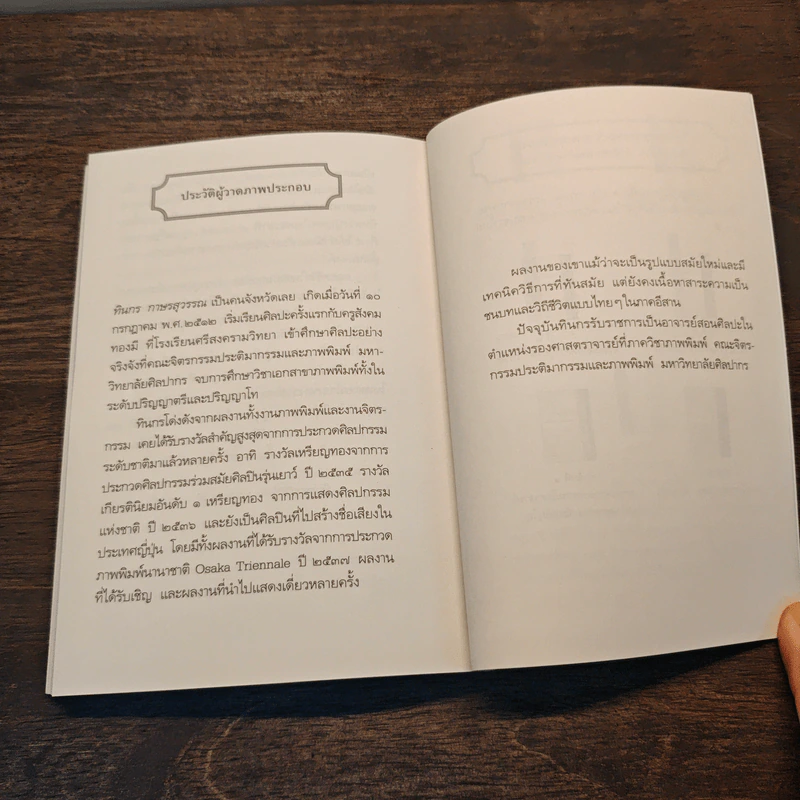 ประวัติผู้วาดภาพประกอบ
ทินกร กาษรสุวรรณ เป็นคนจังหวัดเลย เกิดเมื่อวันที่ ๑๐
กรกฎาคม พ.ศ. ๒๕๑๒ เริ่มเรียนศิลปะครั้งแรกกับครูสังคม
ทองมี ที่โรงเรียนศรีสงครามวิทยา เข้าศึกษาศิลปะอย่าง
จริงจังที่คณะจิตรกรรมประติมากรรมและภาพพิมพ์ มหา-
วิทยาลัยศิลปากร จบการศึกษาวิชาเอกสาขาภาพพิมพ์ทั้งใน
ระดับปริญญาตรีและปริญญาโท
ทินกรโด่งดังจากผลงานทั้งงานภาพพิมพ์และงานจิตร-
กรรม เคยได้รับรางวัลสำคัญสูงสุดจากการประกวดศิลปกรรม
ระดับชาติมาแล้วหลายครั้ง อาทิ รางวัลเหรียญทองจากการ
ประกวดศิลปกรรมร่วมสมัยศิลปินรุ่นเยาว์ ปี ๒๕๓๕ รางวัล
เกียรตินิยมอันดับ ๑ เหรียญทอง จากการแสดงศิลปกรรม
แห่งชาติ ปี ๒๕๓๖ และยังเป็นศิลปินที่ไปสร้างชื่อเสียงใน
ประเทศญี่ปุ่น โดยมีทั้งผลงานที่ได้รับรางวัลจากการประกวด
ภาพพิมพ์นานาชาติ Osaka Triennale ปี ๒๕๓๗ ผลงาน
ที่ได้รับเชิญ และผลงานที่นำไปแสดงเดี่ยวหลายครั้ง
ผลงานของเขาแม้ว่าจะเป็นรูปแบบสมัยใหม่และมี
เทคนิควิธีการที่ทันสมัย แต่ยังคงเนื้อหาสาระความเป็น
ชนบทและวิถีชีวิตแบบไทยๆ ในภาคอีสาน
ปัจจุบันทินกรรับราชการเป็นอาจารย์สอนศิลปะใน
ตำแหน่งรองศาสตราจารย์ที่ภาควิชาภาพพิมพ์ คณะจิตร-
กรรมประติมากรรมและภาพพิมพ์ มหาวิทยาลัยศิลปากร